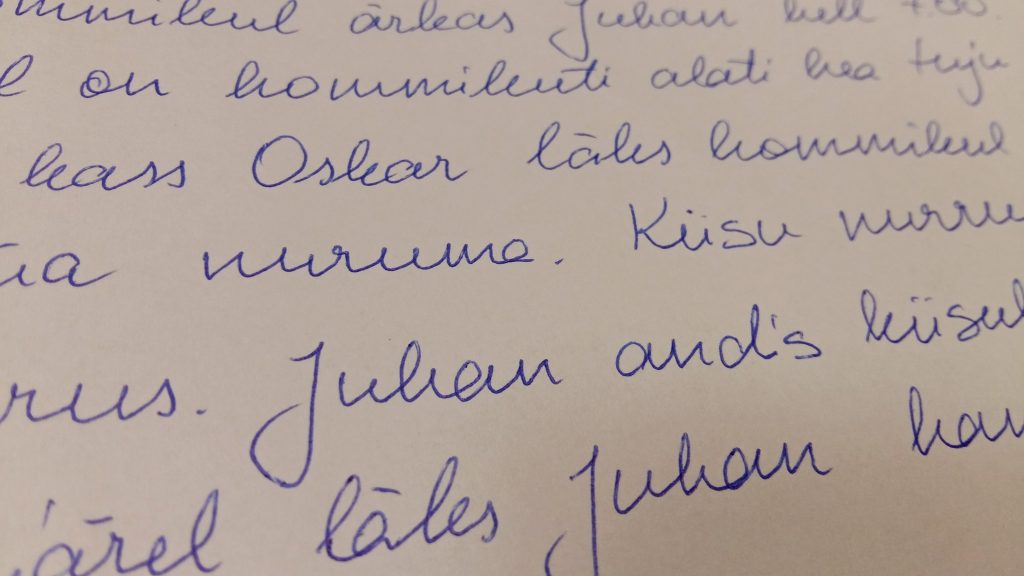 ommikul ärkas Juhan kell 7.00.
l on hommikuti alati hea tuju
kass Oskar läks hommikul
nuruma. Kiisu nurru
rus. Juhan andis kiisul
järel läks Juhan